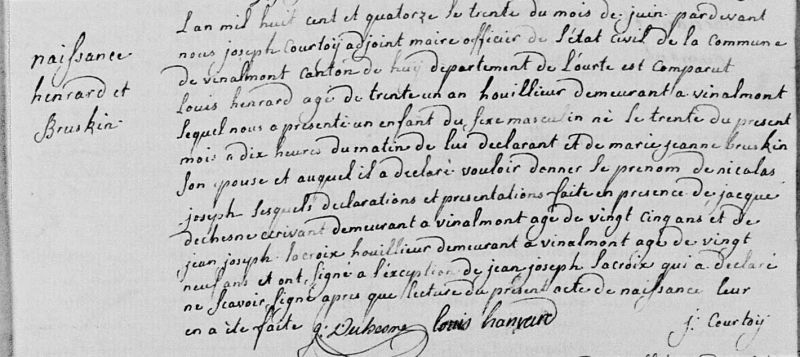 naissance
henrard et
Bruskin
Lan mil huit cent et quatorze le trente du mois de juin pardevant
nous joseph Courtoij adjoint maire officier de l'état civil de la Commune
de vinalmont canton de huij departement de l'ourte est comparut
Louis henrard agé de trente un an houillieur demeurant a vinalmont
lequel nous a présenté un enfant du sixe masculin né le trente du present
mois a dix heures du matin de lui declarant et de marie jeanne bruskin
son epouse et auquel il a declaré vouloir donner le prenom de nicolas
joseph lesquels declarations et presentations faite en presence de jacque
dechesne ecrivant demeurant a vinalmont agé de vingt cinq ans et de
jean joseph lacroix houillieur demeurant a vinalmont agé de vingt
neuf ans et ont signé a l'exception de jean joseph lacroix qui a declaré
ne scavoir signé apres que lecture du présent acte de naissance leur
en a ete faite j: Duchesne louis hanrard j: Courtoij